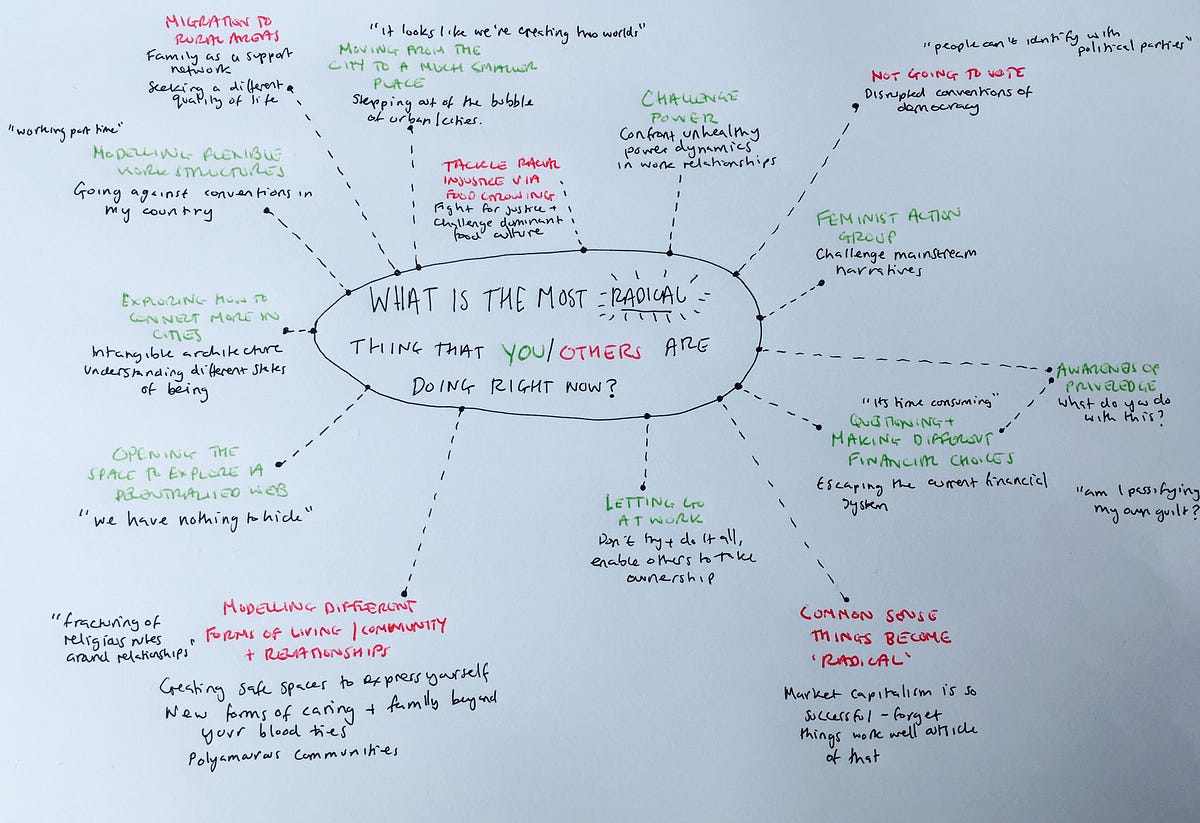 MIGRATION TO
RURAL AREAS
Family as a support
network
Seeking a different
quality of life
"it looks like we're creating two worlds"
MOVING FROM THE
CITY TO A MUCH SMALLER
PLACE
Stepping out of the bubble
of urban/cities.
"people can't identify with
political parties"
NOT GOING TO VOTE
Disrupted conventions of
democracy
CHALLENGE
POWER
Confront unhealthy
power dynamics
in work relationships
"working part time"
MODELLING FLEXIBLE
WORK STRUCTURES
Going against conventions in
my country
TACKLE RACIAL
INJUSTICE VIA
FOOD GROWING
Fight for justice +
challenge dominant
food culture
FEMINIST ACTION
GROUP
Challenge mainstream
narratives
WHAT IS THE MOST RADICAL
THING THAT YOU/OTHERS ARE
DOING RIGHT NOW?
EXPLORING HOW TO
CONNECT MORE IN
CITIES
Intangible architecture
Understanding different states
of being
AWARENESS OF
PRIVELEDGE
What do you do
with this?
"its time consuming"
QUESTIONING +
MAKING DIFFERENT
FINANCIAL CHOICES
Escaping the current financial
system
"am I passifying
my own guilt?
OPENING THE
SPACE TO EXPLORE A
DECENTRALISED WEB
"we have nothing to hide"
LETTING GO
AT WORK
Don't try + do it all,
enable others to take
ownership
"fracturing of
religious rules
around relationships"
MODELLING DIFFERENT
FORMS OF LIVING / COMMUNITY
+ RELATIONSHIPS
Creating safe spaces to express yourself
New forms of caring + family beyond
your blood ties
Polyamorous communities
COMMON SENSE
THINGS BECOME
'RADICAL'
Market capitalism is so
successful - forget
things work well outside
of that